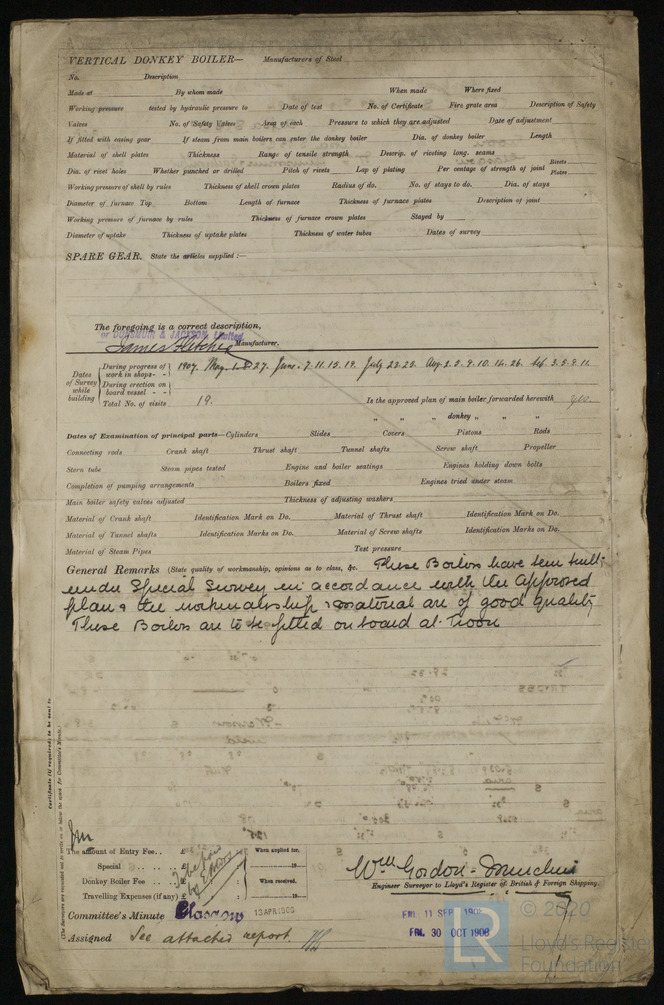 VERTICAL DONKEY BOILER— Manufacturers of Steel
No. Description
Made at By whom made When made Where fixed
Working pressure tested by hydraulic pressure to Date of test No. of Certificate Fire grate area Description of Safety
Valves No. of Safety Valves Area of each Pressure to which they are adjusted Date of adjustment
If fitted with easing gear If steam from main boilers can enter the donkey boiler Dia. of donkey boiler Length
Material of shell plates Thickness Range of tensile strength Descrip. of riveting long. seams
Dia. of rivet holes Whether punched or drilled Pitch of rivets Lap of plating Per centage of strength of joint Rivets Plates
Working pressure of shell by rules Thickness of shell crown plates Radius of do. No. of stays to do. Dia. of stays
Diameter of furnace Top Bottom Length of furnace Thickness of furnace plates Description of joint
Working pressure of furnace by rules Thickness of furnace crown plates Stayed by
Diameter of uptake Thickness of uptake plates Thickness of water tubes Dates of survey
SPARE GEAR. State the articles supplied :—
The foregoing is a correct description,
JACKSON, Limited,
James Fletcher Manufacturer.
Dates of Survey while building
During progress of work in shops - - 1907. May. 27. June. 7. 11. 15. 19. July 23. 25. Aug. 2. 5. 9. 10. 14. 26. 3. 5. 9. 11.
During erection on board vessel - -
Total No. of visits 19. Is the approved plan of main boiler forwarded herewith
" " donkey " "
Dates of Examination of principal parts—Cylinders Slides Covers Pistons Rods
Connecting rods Crank shaft Thrust shaft Tunnel shafts Screw shaft Propeller
Stern tube Steam pipes tested Engine and boiler seatings Engines holding down bolts
Completion of pumping arrangements Boilers fixed Engines tried under steam
Main boiler safety valves adjusted Thickness of adjusting washers
Material of Crank shaft Identification Mark on Do. Material of Thrust shaft Identification Mark on Do.
Material of Tunnel shafts Identification Marks on Do. Material of Screw shafts Identification Marks on Do.
Material of Steam Pipes Test pressure
General Remarks (State quality of workmanship, opinions as to class, &c. These Boilers have been built
under Special Survey in accordance with the approved
plan & the workmanship & material are of good quality
These Boilers are to be fitted on board at Troon
Certificate (if required) to be sent to
(The Surveyors are requested not to write on or below the space for Committee's Minute.)
The amount of Entry Fee . . £ When applied for,
Special . . . £ 19
Donkey Boiler Fee . . . £ When received,
Travelling Expenses (if any) £ 19
To be
by
Wm Gordon-
Engineer Surveyor to Lloyd's Register of British & Foreign Shipping.
Committee's Minute Glasgow
FRI. 11 SEP 1908
FRI. 30 OCT 1908
Assigned See attached report.
© 2020
LR
Lloyd's Register
Foundation